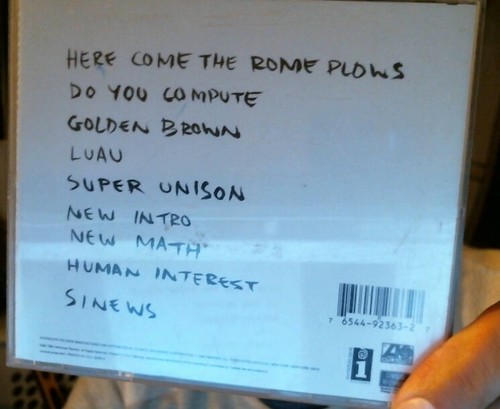 HERE COME THE ROME PLOWS
DO YOU COMPUTE
GOLDEN BROWN
LUAU
SUPER UNISON
NEW INTRO
NEW MATH
HUMAN INTEREST
SINEWS
7 6544-92363-2 7
i